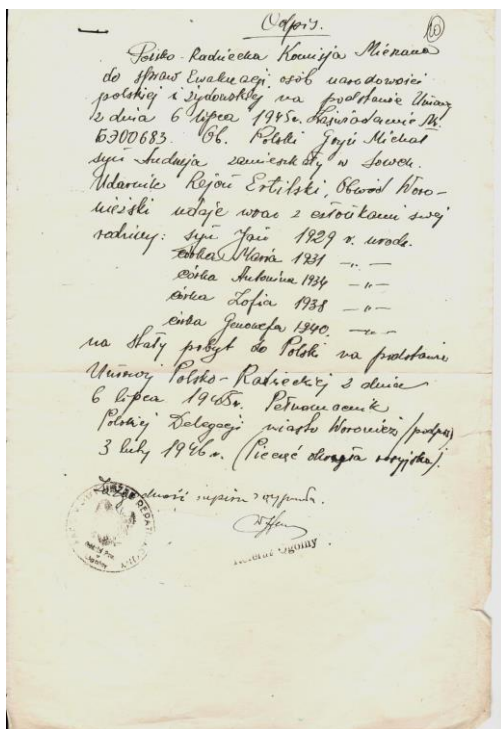 Odpis.
10
Polsko-Radziecka Komisja Mieszana
do spraw Ewakuacji osób narodowości
polskiej i żydowskiej na podstawie Umowy
z dnia 6 lipca 1945r. Zaświadczenie Nr.
БЭ00683. Ob. Polski Michał
syn Andrzeja zamieszkały w Sowch.
Udarnik Rejon Ertilski, Obwód Woro-
nieżski udaje wraz z członkami swej
rodziny: syn Jan 1929 r. urodz.
córka Maria 1931 —„—
córka Antonina 1934 —„—
córka Zofia 1938 —„—
córka Genowefa 1940. —„—
na stały pobyt do Polski na podstawie
Umowy Polsko-Radzieckiej z dnia
6 lipca 1945r. Pełnomocnik
Polskiej Delegacji miasto Woronież /podpis/
3 luty 1946r. (Pieczęć okrągła rosyjska).
Zgodność
Ogólny